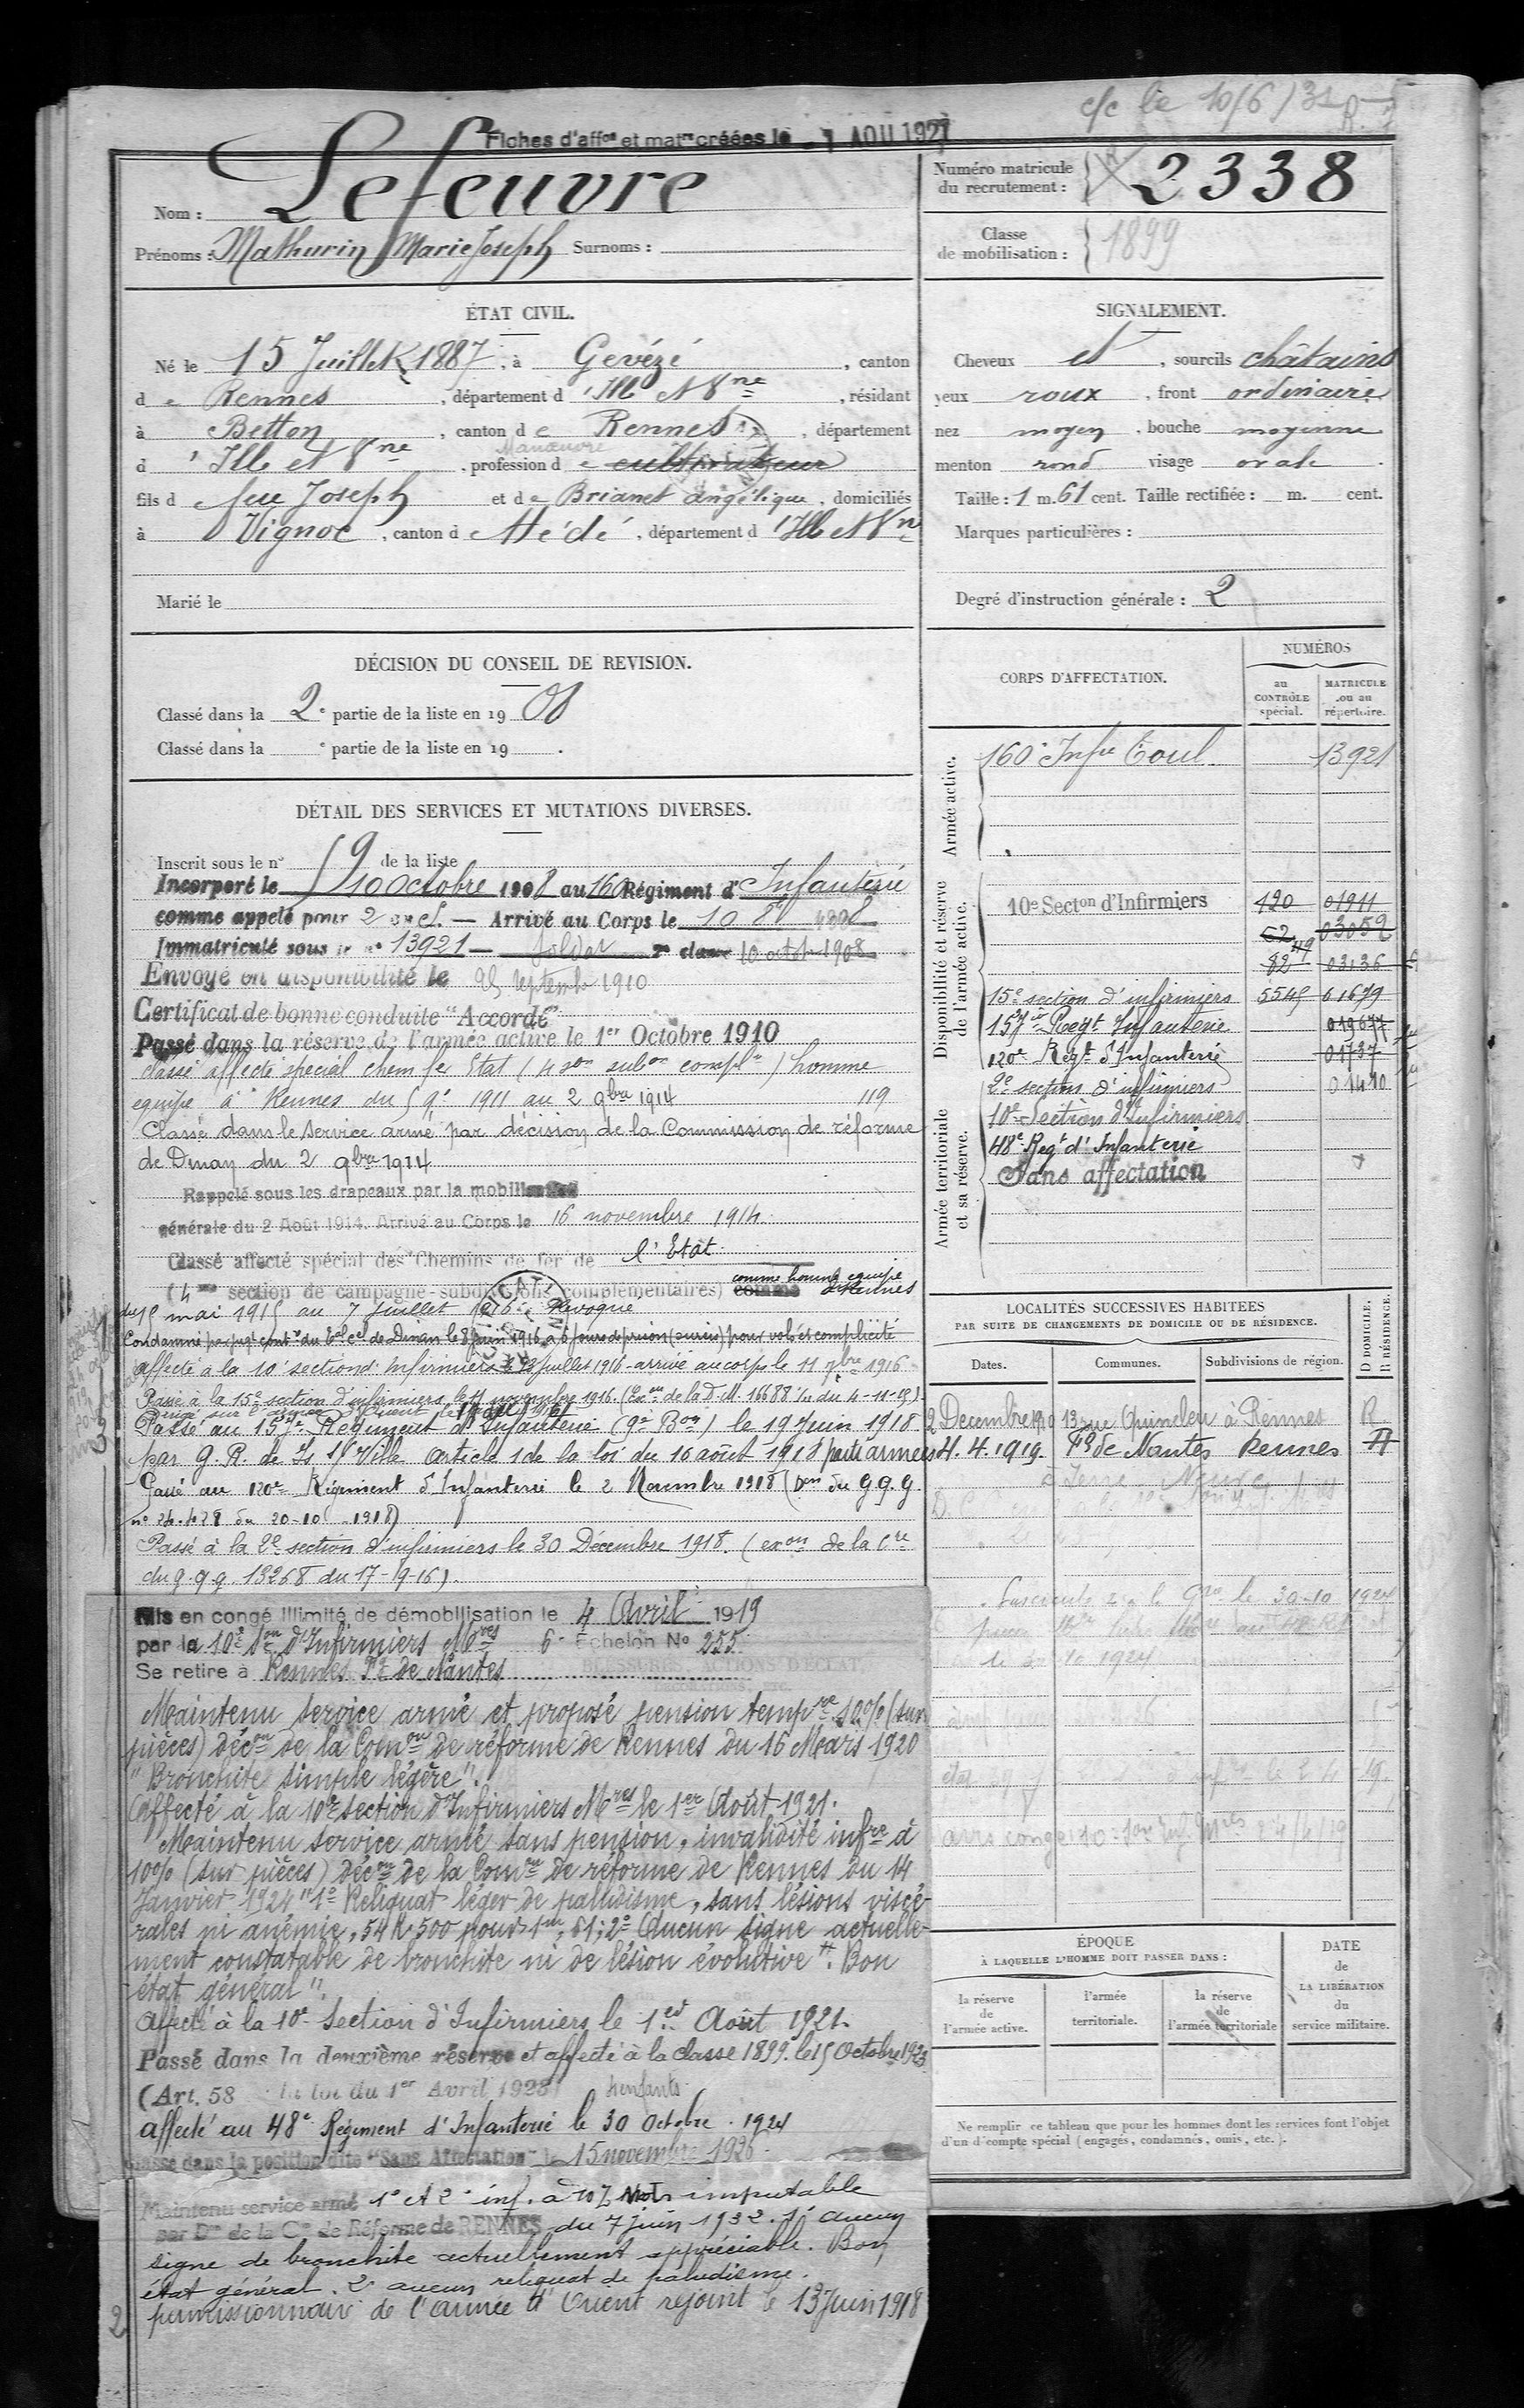 c/c le 10/6/31
Fiches d'affon et matre créées le - 1 AOU 1927
Nom : Lefeuvre
Prénoms : Mathurin Marie Joseph Surnoms :
Numéro matricule du recrutement : 2338
Classe de mobilisation : 1899
ÉTAT CIVIL.
Né le 15 Juillet 1887, à Gevézé, canton
de Rennes, département d'Ille et Vne, résidant
à Betton, canton de Rennes, département
d'Ille et Vne, profession de cultivateur Manœuvre
fils de feu Joseph et de Brianet Angélique, domiciliés
à Vignoc, canton d Hédé, département d'Ille et Vne
Marié le
SIGNALEMENT.
Cheveux et, sourcils châtains
yeux roux, front ordinaire
nez moyen, bouche moyenne
menton rond visage ovale.
Taille : 1 m. 61 cent. Taille rectifiée : m. cent.
Marques particulières :
Degré d'instruction générale : 2
DÉCISION DU CONSEIL DE REVISION.
Classé dans la 2e partie de la liste en 1908
Classé dans la e partie de la liste en 19 .
DÉTAIL DES SERVICES ET MUTATIONS DIVERSES.
Inscrit sous le n° 59 de la liste
Incorporé le 10 Octobre 1908 au 160 Régiment d'Infanterie
comme appelé pour 2 ans. — Arrivé au Corps le 10 8bre 1908
Immatriculé sous le n° 13921 — Soldat 2e classe 10 octob 1908
Envoyé en disponibilité le 25 septembre 1910
Certificat de bonne conduite "Accordé"
Passé dans la réserve de l'armée active le 1er Octobre 1910
Classé affecté spécial chem fer Etat (4 son subon complre) homme
equipe à Rennes du 5 9e 1911 au 2 9bre 1914 119
Classé dans le service armé par décision de la Commission de réforme
de Dinan du 2 9bre 1914
Rappelé sous les drapeaux par la mobilisation
générale du 2 Août 1914. Arrivé au Corps le 16 novembre 1914.
Classé affecté spécial des Chemins de fer de l'Etat
(4me section de campagne - subdivisions complémentaires) comme homme equipe à Rennes
du 15 mai 1915 au 7 Juillet 1916. Revoqué
Condamné par jugt contre du bal ce de Dinan le 8 juin 1916 à 6 jours de prison (sursis) pour vol et complicité
Affecté à la 10e section d'Infirmiers le Juillet 1916 - arrivé au corps le 11 7bre 1916
Passé à la 15e section d'infirmiers le 11 novembre 1916. (Exon de la D.M. 16688 du 4-11-15)
Passé au 157e Régiment d'Infanterie (9e Bon) le 19 Juin 1918
par G.R. de Is Sr Ville article 1 de la loi du 16 août 1918 petite armées
Passé au 120e Régiment d'Infanterie le 2 Novembre 1918 (Don du G.Q.G.
n° 24.428 du 20-10-1918)
Passé à la 2e section d'infirmiers le 30 Décembre 1918. (exon de la Cre
du G.Q.G. 13268 du 17-19-16).
Mis en congé illimité de démobilisation le 4 Avril 1919
par la 10e Son d'Infirmiers Mres 6e Echelon No 255
Se retire à Rennes Fg de Nantes
Maintenu service armé et proposé pension tempre 10% (sur
pièces) décon de la Comon de réforme de Rennes du 16 Mars 1920
"Bronchite simple légère".
Affecté à la 10e section d'Infirmiers Mres le 1er Août 1921.
Maintenu service armé sans pension, invalidité infre à
10% (sur pièces) décon de la Comon de réforme de Rennes du 14
Janvier 1924 "1° Reliquat léger de paludisme, sans lésions viscé-
rales ni anémie, 54 K,500 pour 1m,61; 2° Aucun signe actuelle-
ment constatable de bronchite ni de lésion évolutive". Bon
état général".
Affecté à la 10e Section d'Infirmiers le 1er Août 1921.
Passé dans la deuxième réserve et affecté à la classe 1899. le 15 Octobre 1923
(Art. 58 la loi du 1er Avril 1923) 4 enfants
affecté au 48e Régiment d'Infanterie le 30 Octobre 1924
Classé dans la position dite "Sans Affectation" le 15 novembre 1926
Maintenu service armé 1° et 2° inf. à 10% Non imputable
par Don de la Con de Réforme de RENNES du 7 juin 1932. 1° aucun
signe de bronchite actuellement appréciable. Bon
état général. 2° aucun reliquat de paludisme.
permissionnaire de l'armée d'Orient rejoint le 13 Juin 1918
2
CORPS D'AFFECTATION.
NUMÉROS
au CONTRÔLE spécial.
MATRICULE ou au répertoire.
Armée active.
160e Infie Toul 13921
Disponibilité et réserve de l'armée active.
10e Secton d'Infirmiers 120 01911
62 03052
82 49 03136
15e section d'infirmiers 5545 01679
157e Regt Infanterie 019677
120e Regt d'Infanterie 01737
Armée territoriale et sa réserve.
2e section d'infirmiers 01410
10e Section d'Infirmiers
48e Regt d'Infanterie
Sans affectation
LOCALITÉS SUCCESSIVES HABITÉES
PAR SUITE DE CHANGEMENTS DE DOMICILE OU DE RÉSIDENCE.
Dates. Communes. Subdivisions de région. D DOMICILE. R RÉSIDENCE.
2 Decembre 1910 13 rue à Rennes R
4.4.1919. Fg de Nantes Rennes
Terre Neuve
le 30-10 1924
ÉPOQUE
À LAQUELLE L'HOMME DOIT PASSER DANS :
la réserve de l'armée active.
l'armée territoriale.
la réserve de l'armée territoriale
DATE de LA LIBÉRATION du service militaire.
Ne remplir ce tableau que pour les hommes dont les services font l'objet
d'un décompte spécial (engagés, condamnés, omis, etc.).